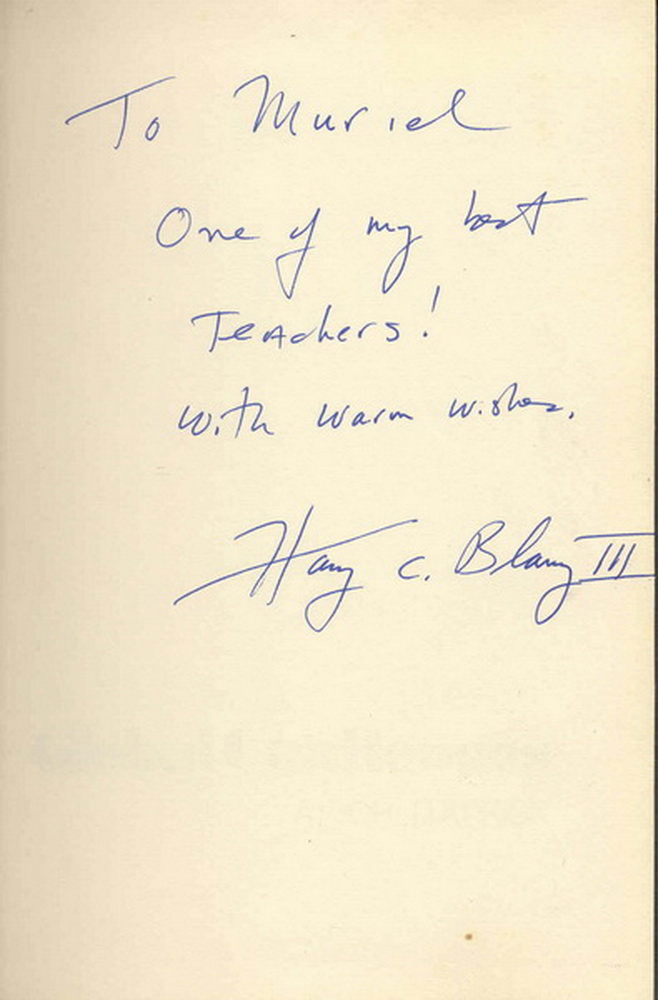 To Muriel
One of my best
Teachers!
With warm wishes,
Harry C. Blaney III